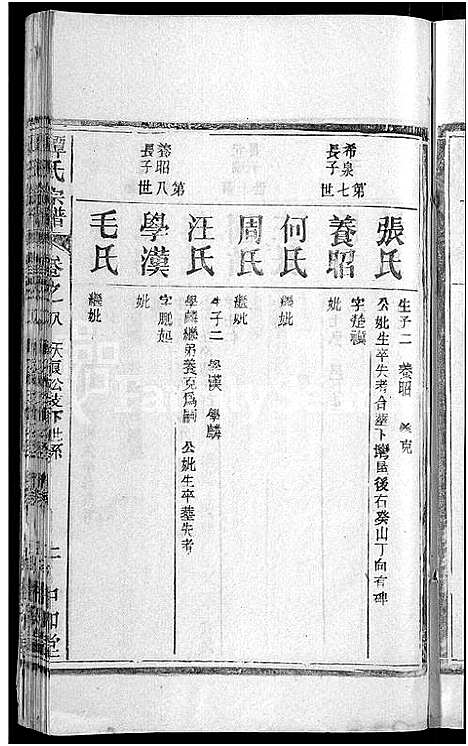 張氏
生子二 養昭 養克
公妣生卒失考合葬下灣屋後右癸山丁向有碑
希泉長子
第七世
養昭
字楚漢
妣
何氏
繼妣
周氏
繼妣
汪氏
生子二 學漢 學麟
學麟繼弟養克爲嗣 公妣生卒墓失考
養昭長子
第八世
學漢
字鵬起
妣
毛氏
繼妣
譚氏宗譜
卷之八
公支下世系
中和堂